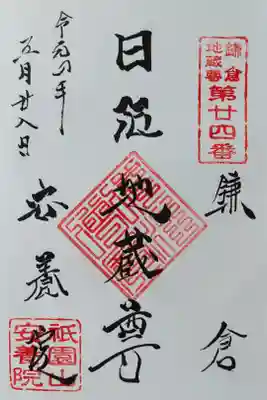 鎌倉
地蔵尊
第廿四番
鎌倉
日限地蔵尊
令和四年
五月廿八日
安養院
祇園山
安養院